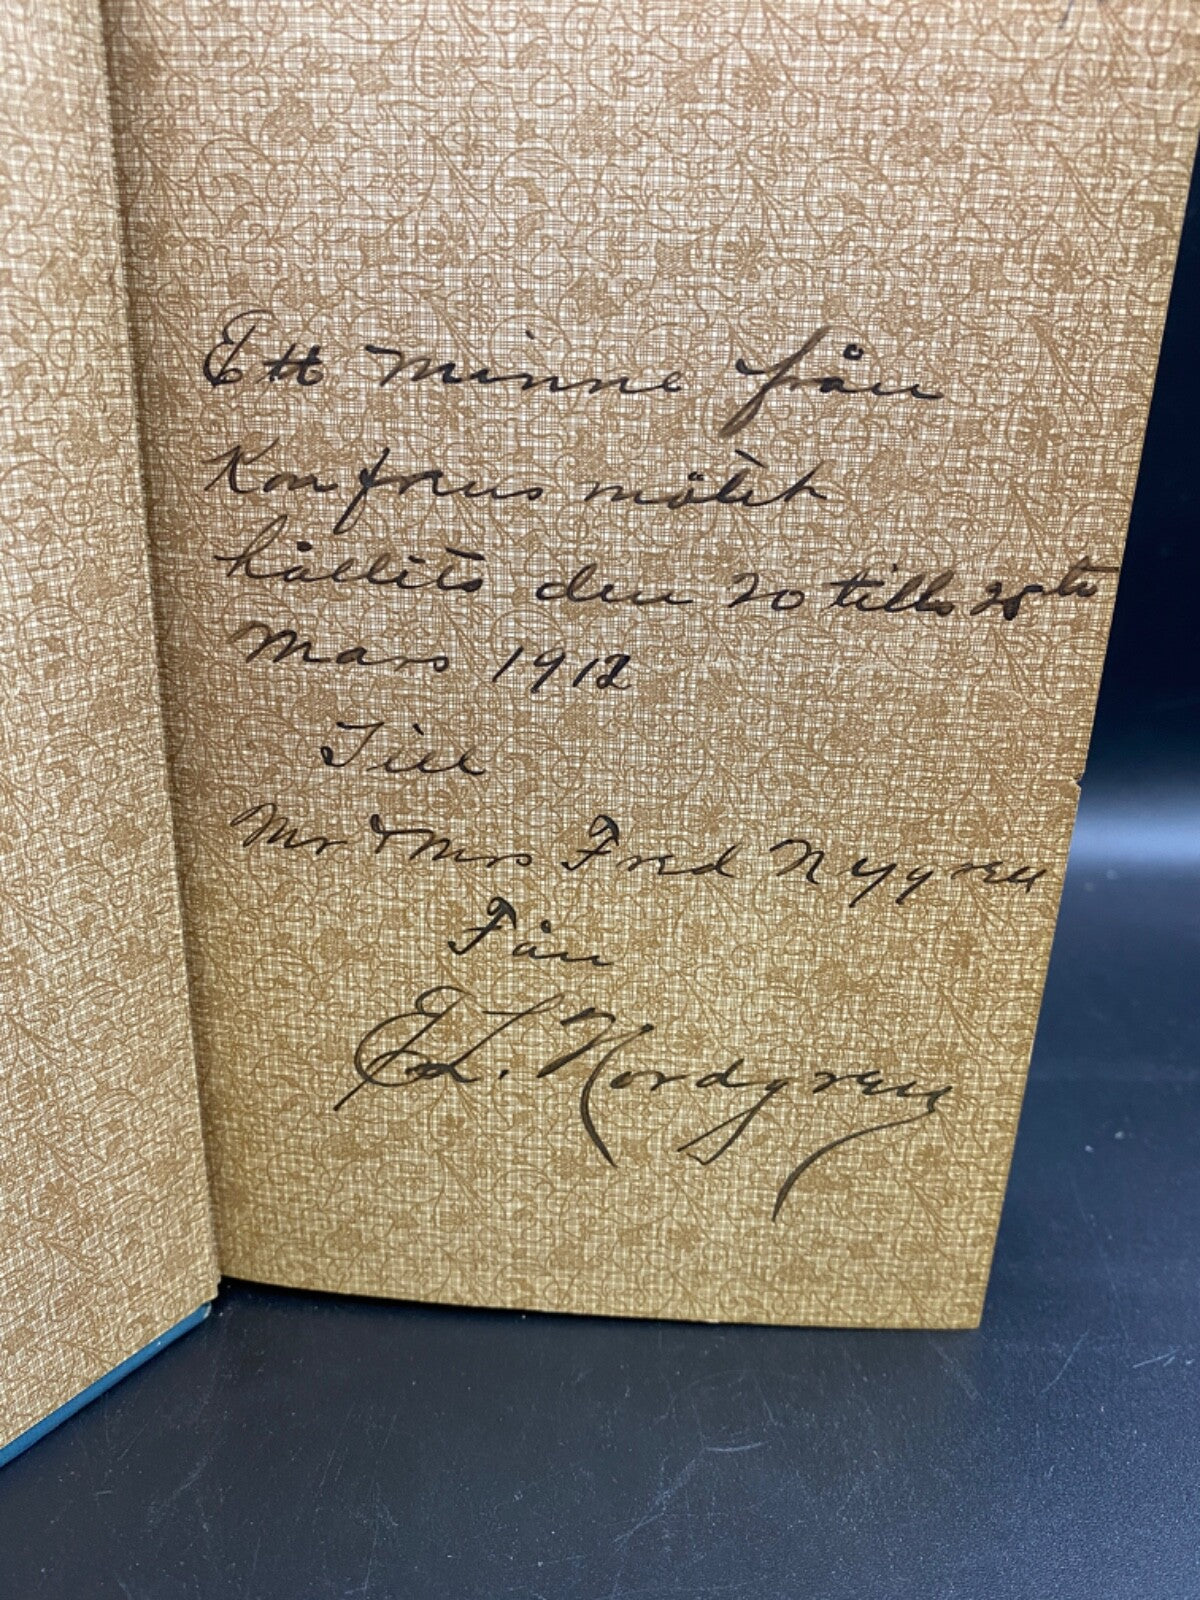 Ett minne från
Konfrens mötet
hållits den 20 till 25te
Mars 1912
Till
Mr & Mrs Fred Nygren
Från
E L. Nordgren